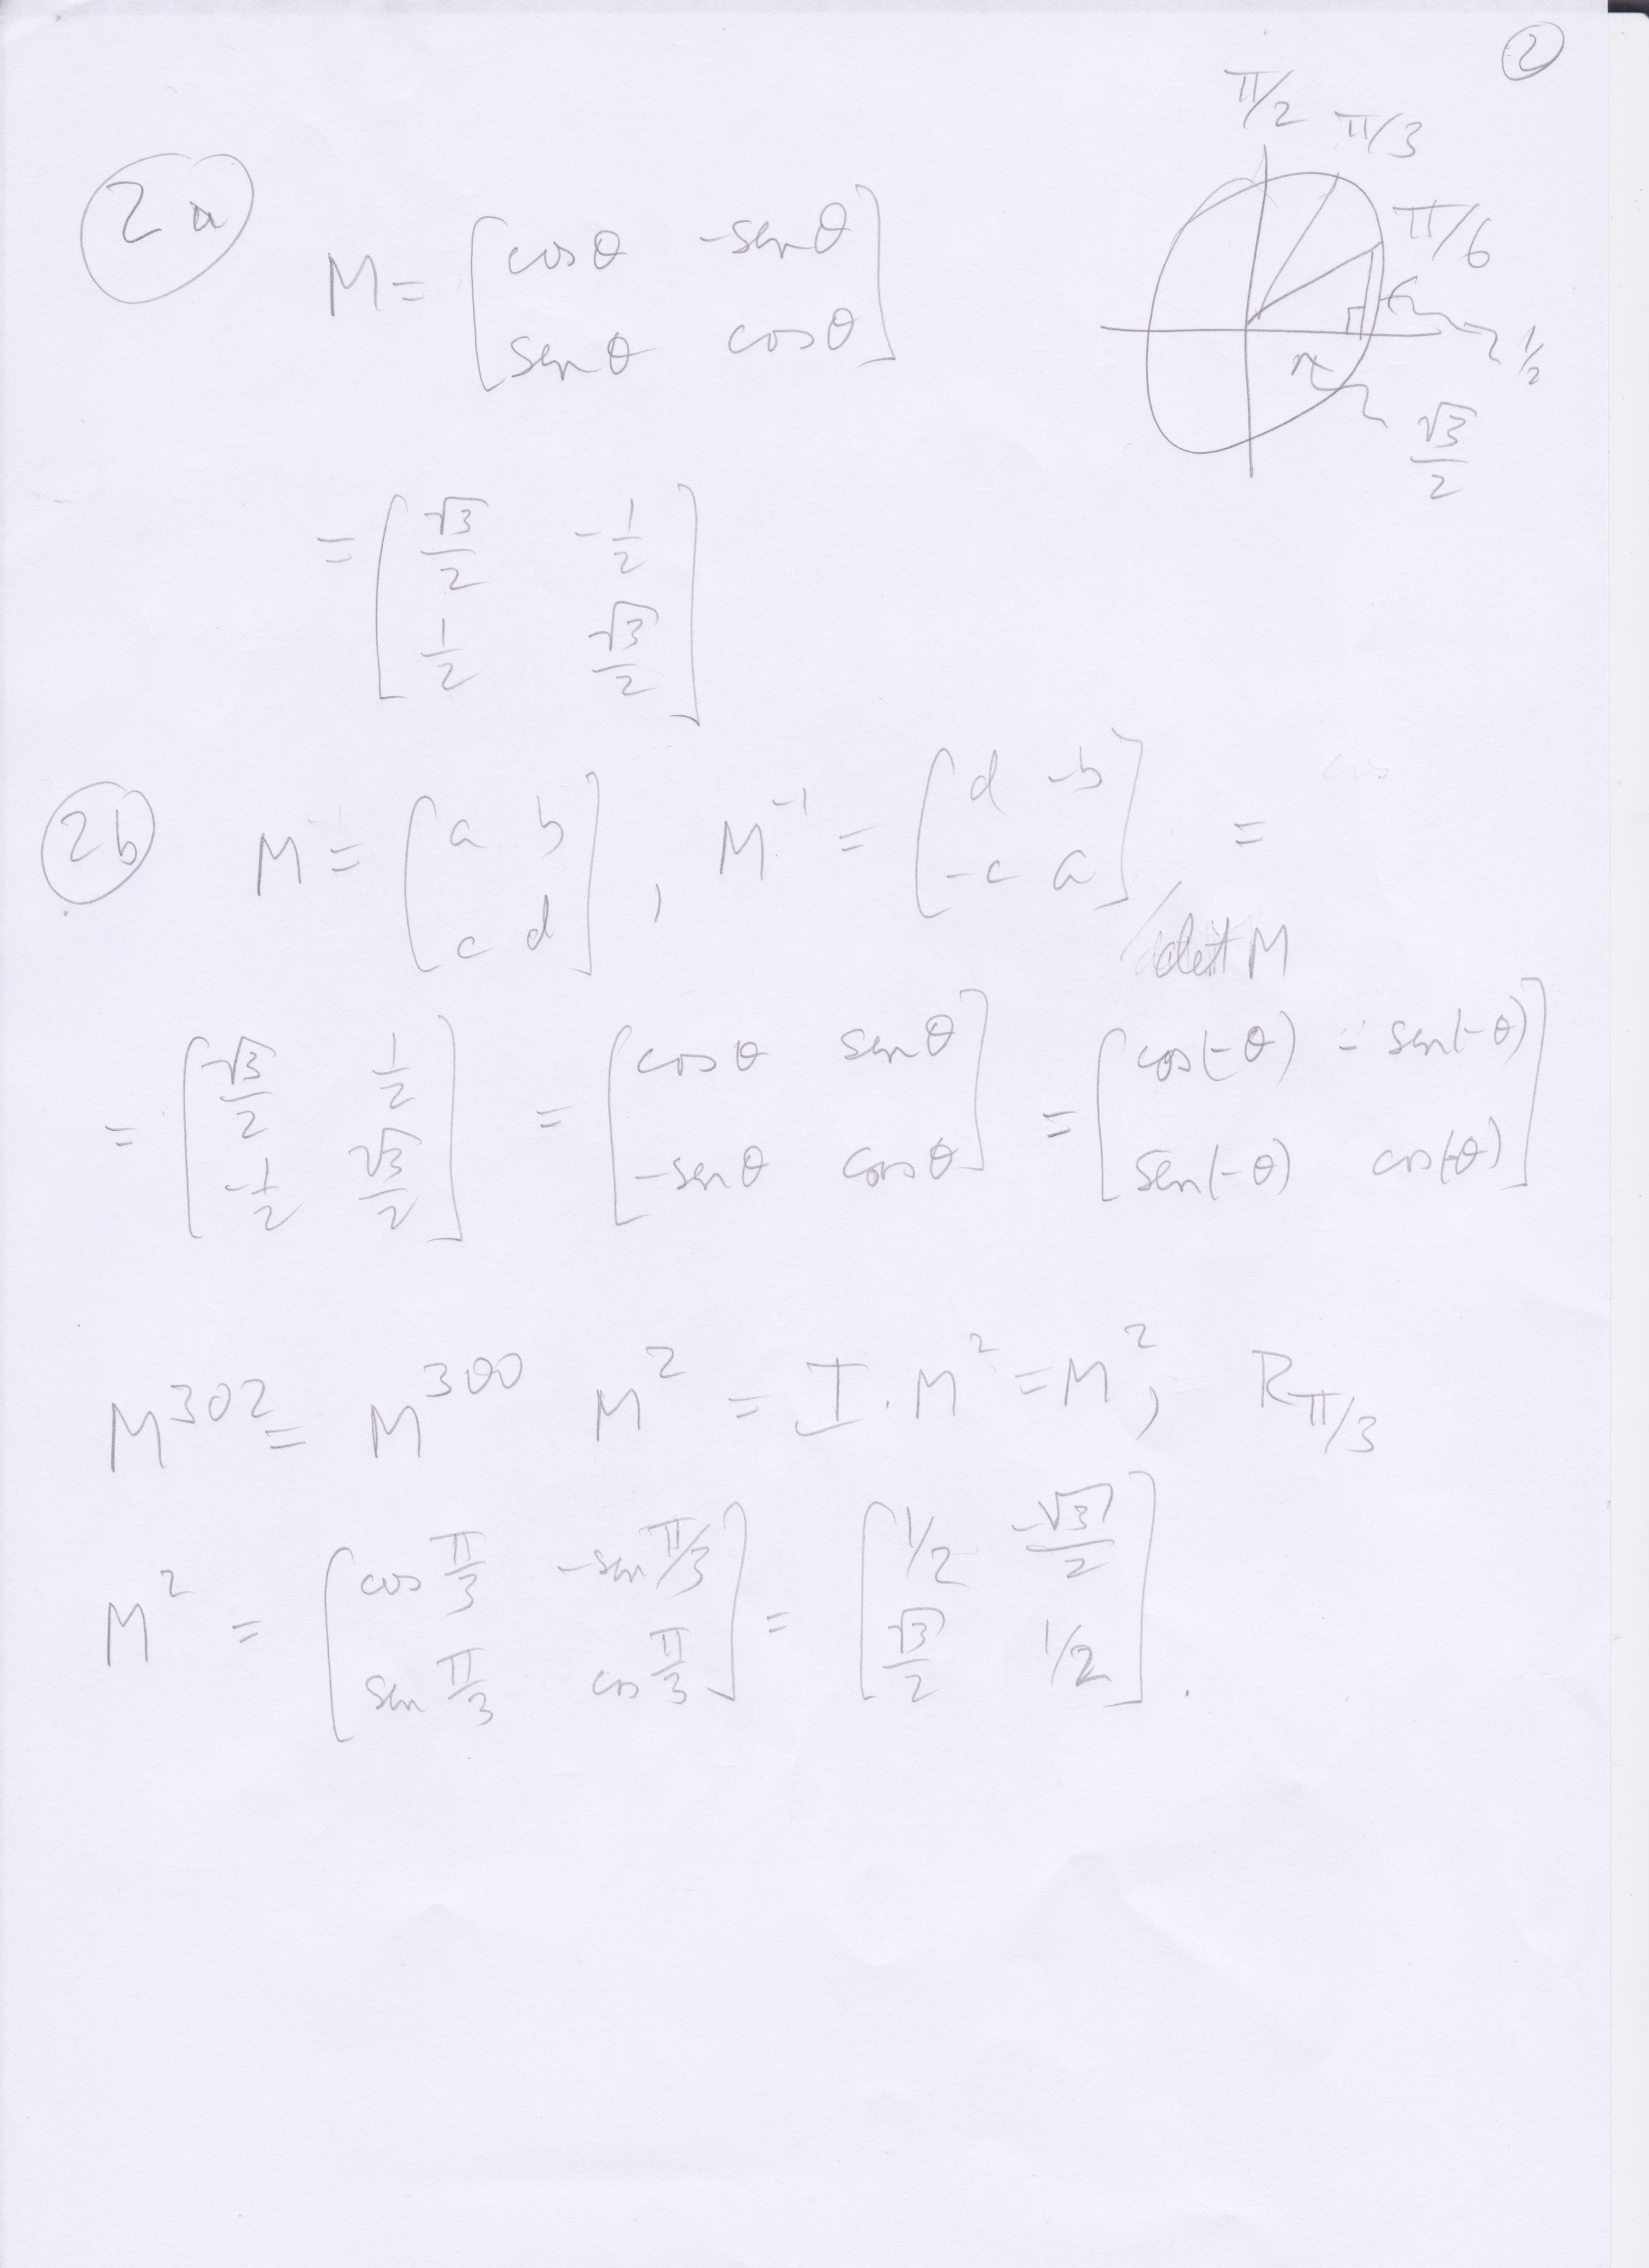 2
π/2 π/3
π/6
1/2
√3/2
2a
M = [cosθ -senθ
senθ cosθ]
= [√3/2 -1/2
1/2 √3/2]
2b
M = [a b
c d] , M⁻¹ = [d -b
-c a] / det M =
= [√3/2 1/2
-1/2 √3/2] = [cosθ senθ
-senθ cosθ] = [cos(-θ) -sen(-θ)
sen(-θ) cos(-θ)]
M³⁰² = M³⁰⁰ M² = I · M² = M², R π/3
M² = [cos π/3 -sen π/3
sen π/3 cos π/3] = [1/2 -√3/2
√3/2 1/2] .